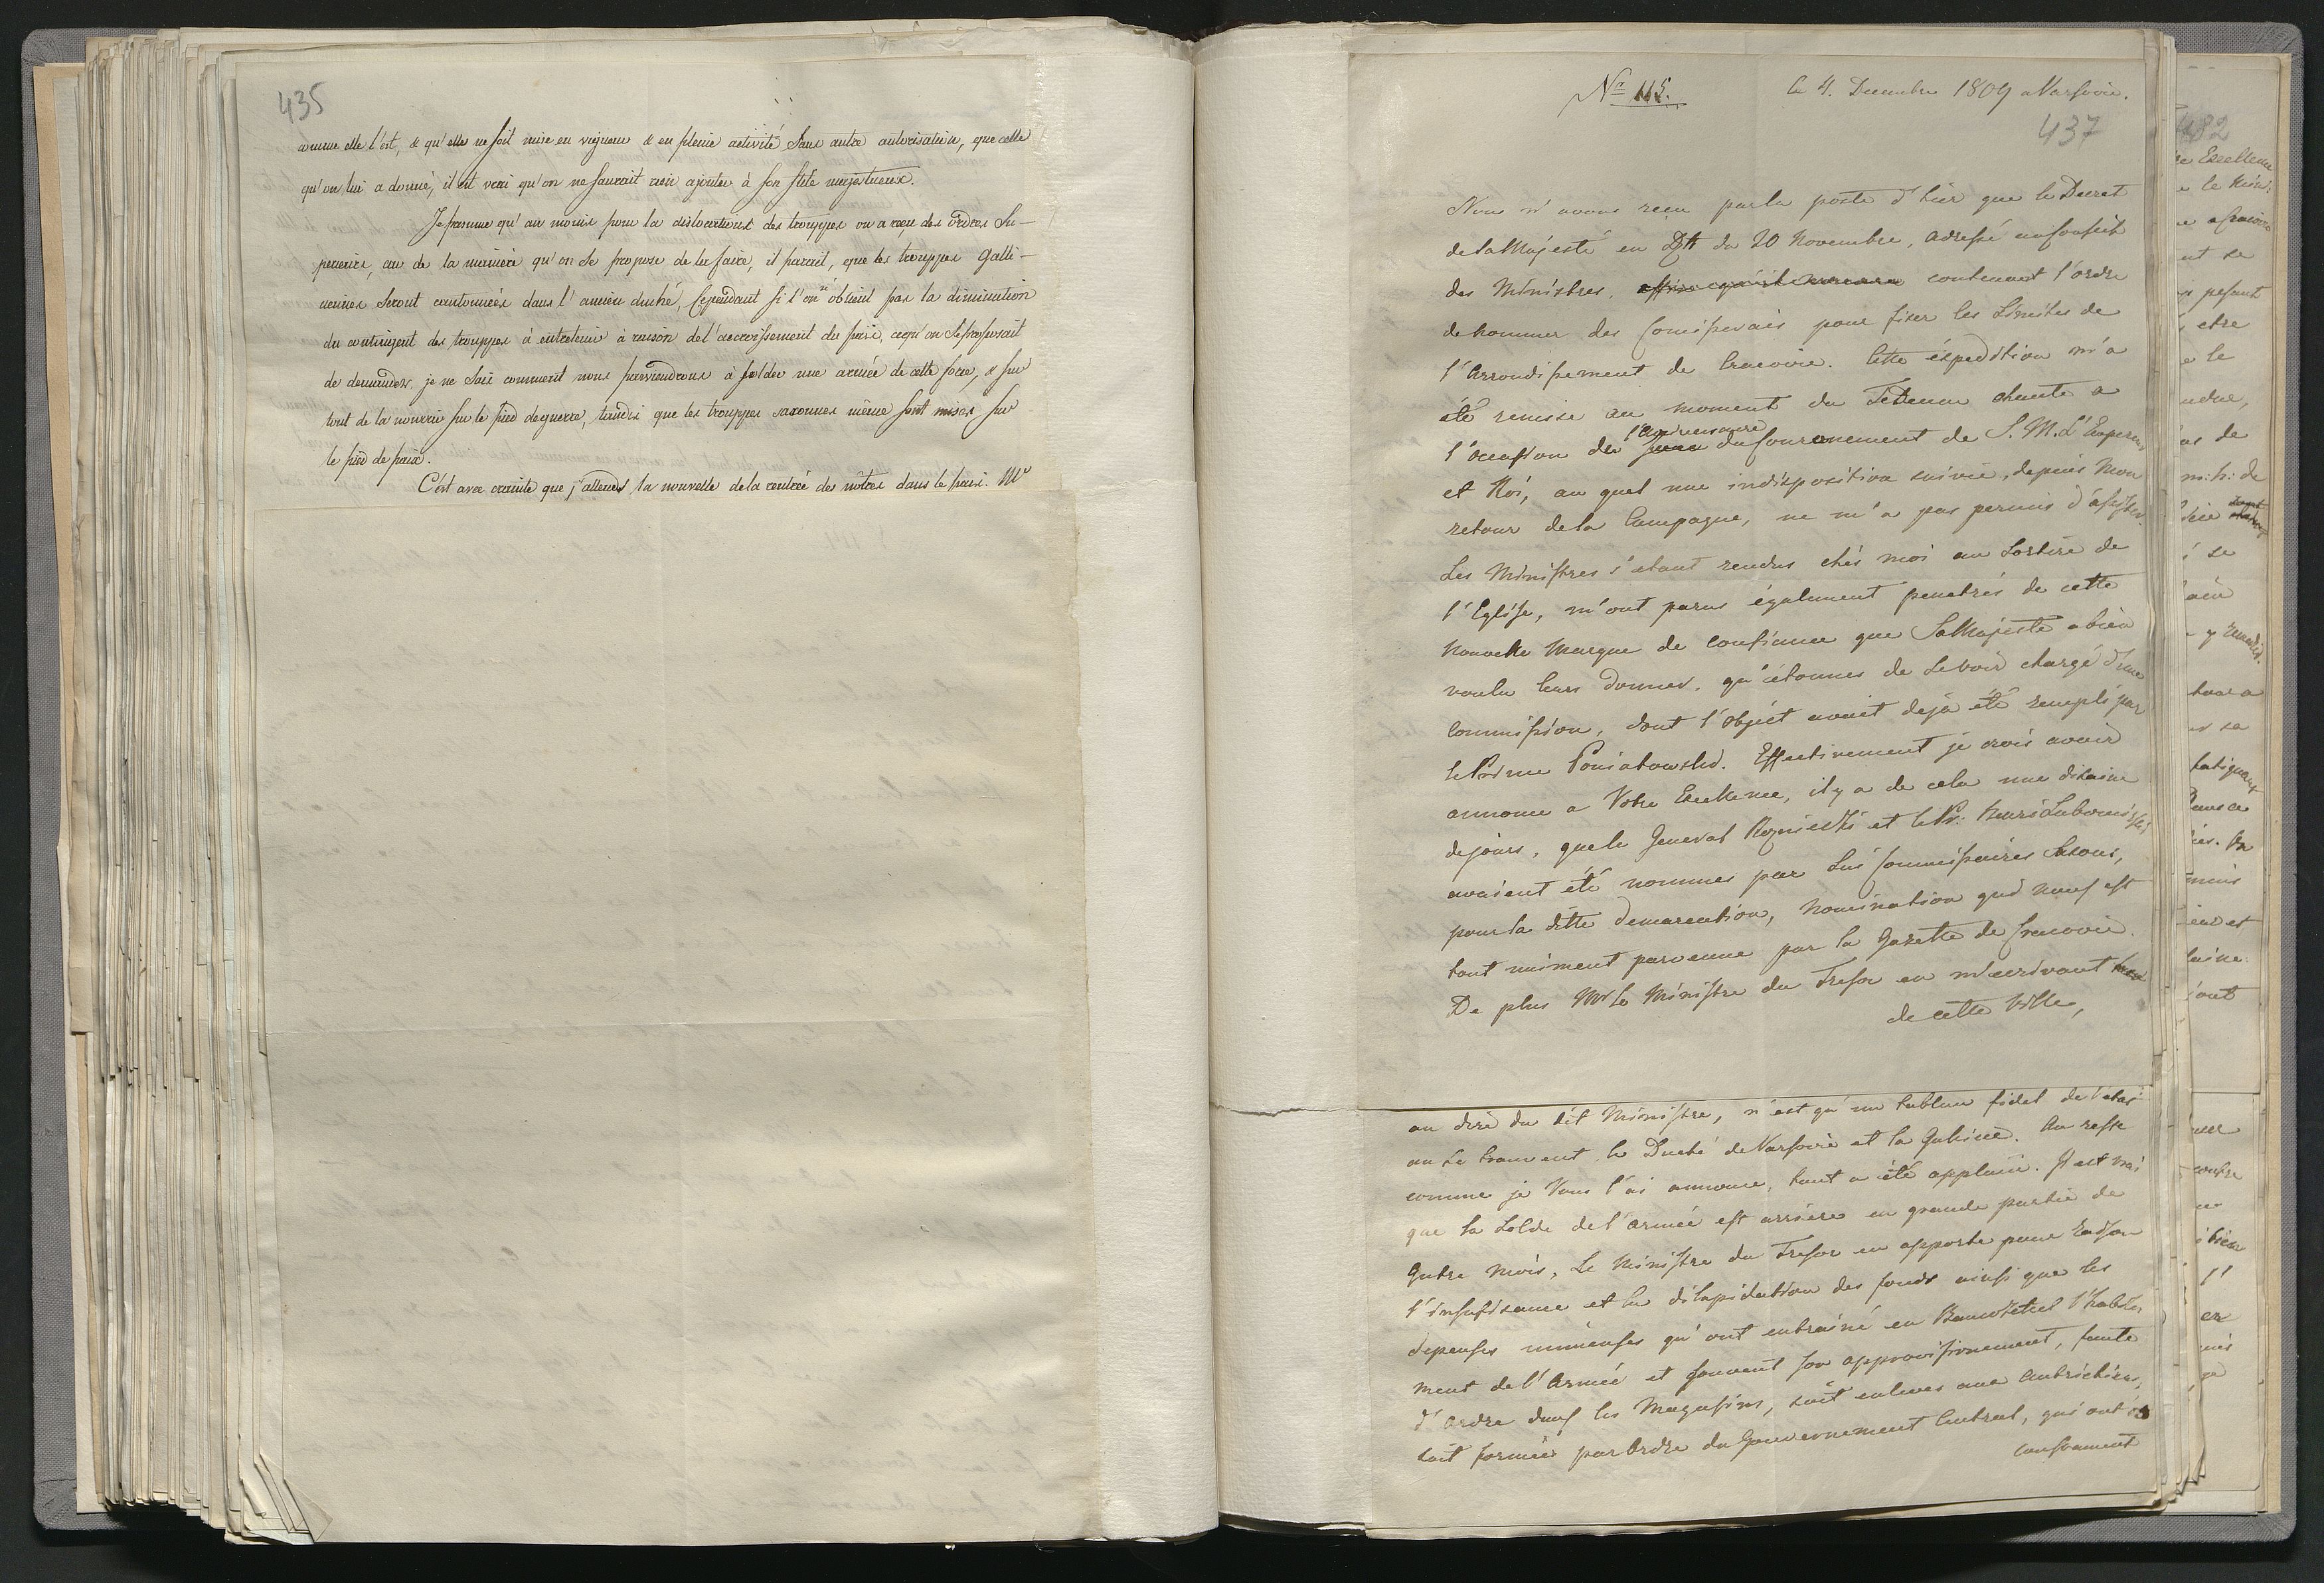 435
comme elle l'est, & qu'elle ne soit mise en vigueur & en pleine activité sans autre autorisation, que celle
qu'on lui a donné, il est vrai qu'on ne saurait rien ajouter à son stile majestueux.
Je presume qu'au moins pour la dislocations des trouppes on a reçu des ordres Su-
perieurs, car de la manière qu'on se propose de les faire, il parait, que les trouppes Galli-
ciennes seront cantonnées dans l'ancien duché, Cependant si l'on n'obtient pas la diminution
du contingent des trouppes à entretenir à raison de l'accroissement du païs, ce qu'on se proposait
de demander, je ne sais comment nous parviendrons à solder une armée de cette force, & sur
tout de la nourrir sur le pied de guerre, tandis que les trouppes saxonnes même sont mises sur
le pied de paix.
C'est avec crainte que j'attends la nouvelle de la rentrée des nôtres dans le païs. Mr
No 115.
le 4. Decembre 1809 a Varsovie.
437
Nous n'avons reçu par la poste d'hier que le Decret
de Sa Majesté en Dtt du 20 Novembre, adressé au Conseil
des Ministres, contenant l'ordre
de nommer des pour fixer les Limites de
l'Arrondissement de Cracovie. Cette éxpedition m'a
été remise au moment du Tedeum chanté a
l'occasion de l'Anniversaire du Couronnement de S. M. L'Empereur
et Roi, au quel une indisposition suivie, depuis mon
retour de la Campagne, ne m'a pas permis d'assister.
Les Ministres s'etant rendus chés moi au Sortire de
l'Eglise, m'ont parus également penetrés de cette
nouvelle Marque de confiance que Sa Majesté a bien
voulu leur donner, qu'étonnes de se voir chargé d'une
Commission, dont l'objet avait dejà été rempli par
le Prince Poniatowski. Effectivement je crois avoir
annoncé a Votre Excellence, il y a de cela une disaine
de jours, que le General Rozniecki et le Pr: Henri Lubomirski
avaient été nommes par Lui Commissaires
pour la ditte demarcation, nomination qui nous est
tout uniment parvenue par la Gazette de Cracovie.
De plus Mr le Ministre du Tresor en m'ecrivant
de cette Ville,
au dire du dit Ministre, n'est qu'un tableau fidel de l'etat
ou se trouvent le Duché de Varsovie et la Galicie. Au reste
comme je Vous l'ai annoncé, tout a été applani. Il est vrai
que la Solde de l'armée est arrière en grande partie de
Quatre Mois, Le Ministre du Tresor en apporte pour raison
l'insufisance et la dilapidation des fonds ainsi que les
depenses immenses qu'ont entrainé en l'habille
ment de l'Armée et souvent son approvisionnement, faute
d'ordre dans les Magasins, soit enleves aux Autrichiens,
soit formées par Ordre du Gouvernement Central, qui ont